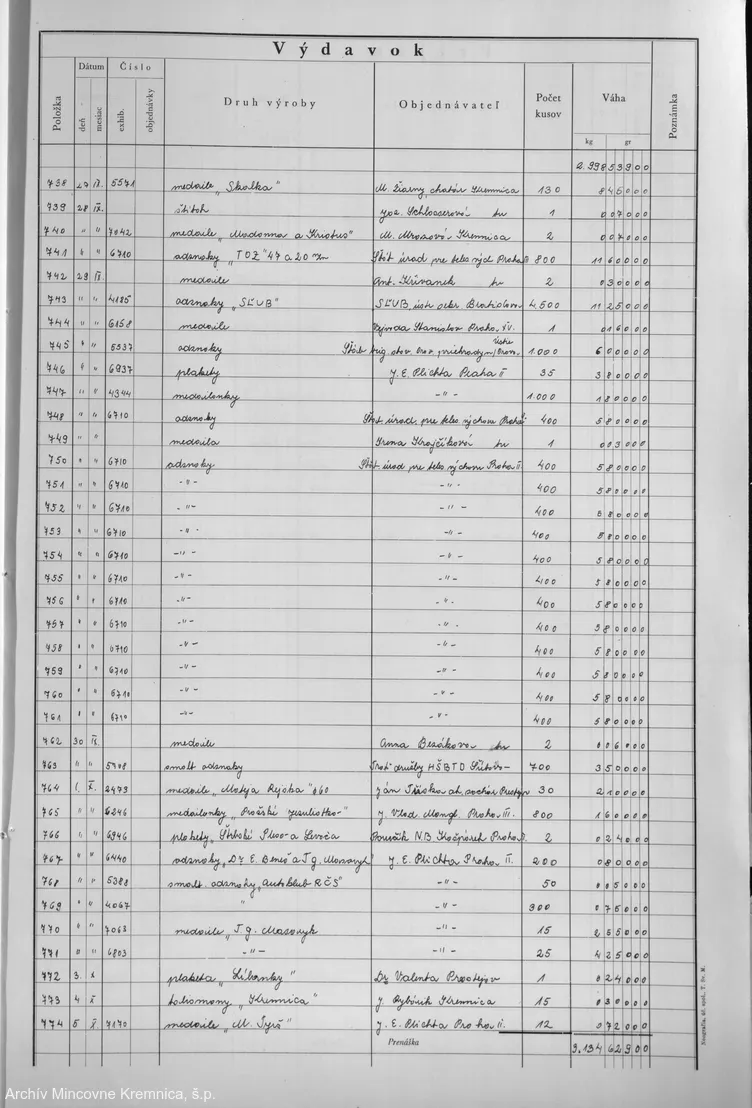 Výdavok
Položka Dátum deň mesiac Číslo exhib. objednávky Druh výroby Objednávateľ Počet kusov Váha kg gr Poznámka
2.998 539 00
738 27 IX. 5571 medaile „Skalka“ M. Žiarny, chatár Kremnica 130 845000
739 28 IX. štítok Joz. Schlosserová tu 1 007000
740 " " 7042 medaile „Madonna a Kristus“ M. Mrozová Kremnica 2 007000
741 " " 6710 odznaky „TOZ“ 47 a 20 m/m Štát. úrad pre teles. vých Praha II 800 1160000
742 29 IX. medaile Ant. Křivanek tu 2 030000
743 " " 4185 odznaky „SĽUB“ SĽUB, ústr. sekr. Bratislava 4500 1125000
744 " " 6158 medaile Stanislav Praha XV. 1 016000
745 " " 5937 odznaky 1.000 600000
746 " " 6937 plakety J. E. Plichta Praha II 35 380000
747 " " 4344 medailonky -"- 1.000 180000
748 " " 6710 odznaky Štát úrad. pre teles výchovu Praha 400 580000
749 " " medaila Irena Krajčíková tu 1 003000
750 " " 6710 odznaky Štát úrad pre teles výchovu Praha II. 400 580000
751 " " 6710 -"- -"- 400 580000
752 " " 6710 -"- -"- 400 580000
753 " " 6710 -"- -"- 400 580000
754 " " 6710 -"- -"- 400 580000
755 " " 6710 -"- -"- 400 580000
756 " " 6710 -"- -"- 400 580000
757 " " 6710 -"- -"- 400 580000
758 " " 6710 -"- -"- 400 580000
759 " " 6710 -"- -"- 400 580000
760 " " 6710 -"- -"- 400 580000
761 " " 6710 -"- -"- 400 580000
762 30 IX. medaile Anna Bezáková tu 2 006000
763 " " 5908 smalt odznaky 700 350000
764 1. X. 2473 medaile „Mateja Rejska“ Ján Tříska ak. sochár 30 210000
765 " " 6246 medailonky J. Vlad. Mangl. Praha III. 800 160000
766 " " 6946 plakety „Štrbské Pleso a Levoča N.B. Kašpárek Praha II. 2 024000
767 " " 6440 odznaky „Dr E. Beneš a T.g. Masaryk“ J. E. Plichta Praha II. 200 080000
768 " " 5388 smalt. odznaky „Autoklub RČS“ -"- 50 005000
769 " " 4067 " -"- 300 075000
770 " " 7063 medaile „T.g. Masaryk -"- 15 255000
771 " " 6803 -"- -"- 25 425000
772 3. X plaketa „Líbánky“ Dr. Valenta Prostějov 1 024000
773 4 X talismany „Kremnica“ J. Rybárik Kremnica 15 030000
774 5 X. 7170 medaile „M. Tyrš“ J. E. Plichta Praha II. 12 072000
Prenáška 3.134 629 00
Neografia, úč. spol., T. Sv. M.
Archív Mincovne Kremnica, š.p.